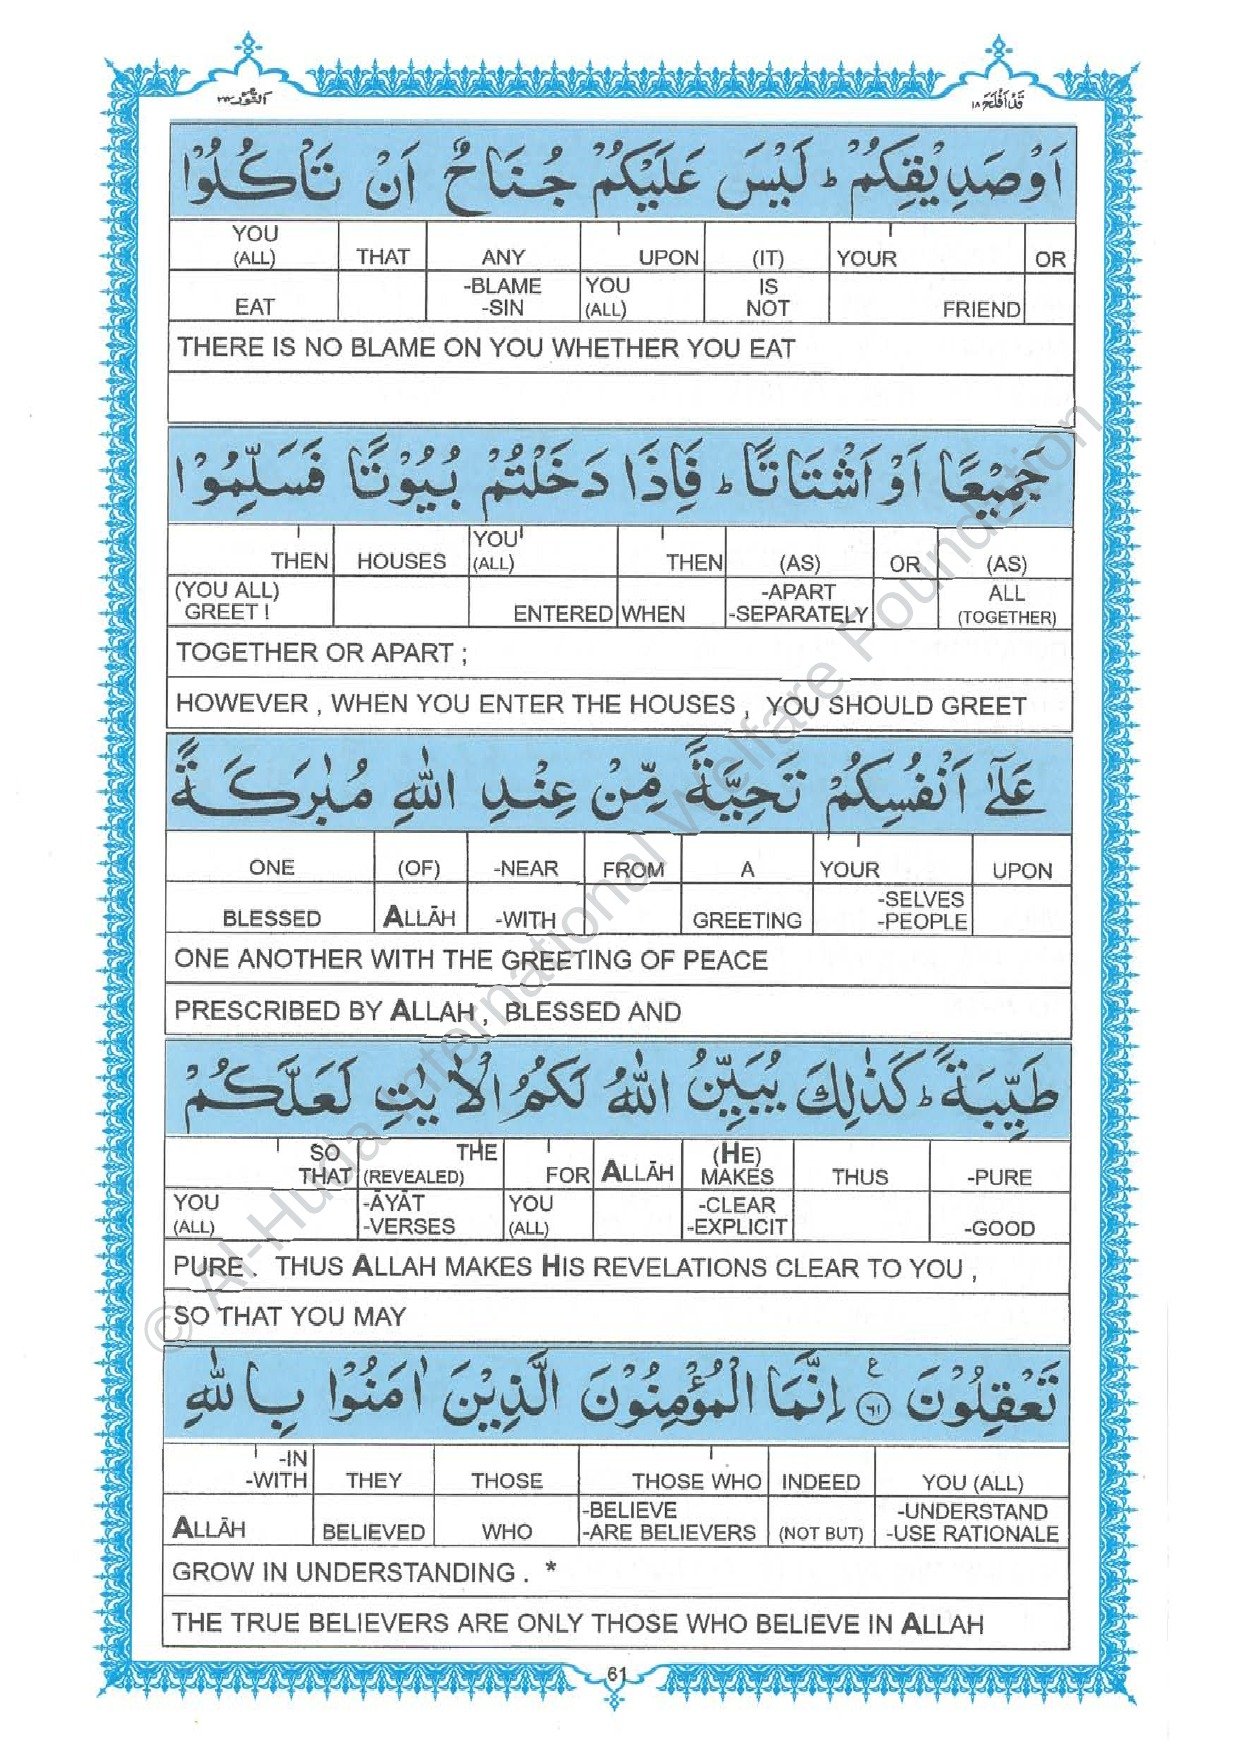 قَدْ اَفْلَحَ ١٨
اَلنُّوْر ٢٤
اَوْ صَدِيْقِكُمْ ؕ لَيْسَ عَلَيْكُمْ جُنَاحٌ اَنْ تَاْكُلُوْا
YOU (ALL) THAT ANY UPON (IT) YOUR OR
EAT -BLAME -SIN YOU (ALL) IS NOT FRIEND
THERE IS NO BLAME ON YOU WHETHER YOU EAT
جَمِيْعًا اَوْ اَشْتَاتًا ؕ فَاِذَا دَخَلْتُمْ بُيُوْتًا فَسَلِّمُوْا
THEN HOUSES YOU (ALL) THEN (AS) OR (AS)
(YOU ALL) GREET ! ENTERED WHEN -APART -SEPARATELY ALL (TOGETHER)
TOGETHER OR APART ;
HOWEVER , WHEN YOU ENTER THE HOUSES , YOU SHOULD GREET
عَلٰٓى اَنْفُسِكُمْ تَحِيَّةً مِّنْ عِنْدِ اللّٰهِ مُبٰرَكَةً
ONE (OF) -NEAR FROM A YOUR UPON
BLESSED ALLĀH -WITH GREETING -SELVES -PEOPLE
ONE ANOTHER WITH THE GREETING OF PEACE
PRESCRIBED BY ALLAH , BLESSED AND
طَيِّبَةً ؕ كَذٰلِكَ يُبَيِّنُ اللّٰهُ لَكُمُ الْاٰيٰتِ لَعَلَّكُمْ
SO THAT THE (REVEALED) FOR ALLĀH (HE) MAKES THUS -PURE
YOU (ALL) -ĀYĀT -VERSES YOU (ALL) -CLEAR -EXPLICIT -GOOD
PURE . THUS ALLAH MAKES HIS REVELATIONS CLEAR TO YOU ,
SO THAT YOU MAY
تَعْقِلُوْنَ ۶۱ ع اِنَّمَا الْمُؤْمِنُوْنَ الَّذِيْنَ اٰمَنُوْا بِاللّٰهِ
-IN -WITH THEY THOSE THOSE WHO INDEED YOU (ALL)
ALLĀH BELIEVED WHO -BELIEVE -ARE BELIEVERS (NOT BUT) -UNDERSTAND -USE RATIONALE
GROW IN UNDERSTANDING . *
THE TRUE BELIEVERS ARE ONLY THOSE WHO BELIEVE IN ALLAH
61
© Al-Huda International Welfare Foundation